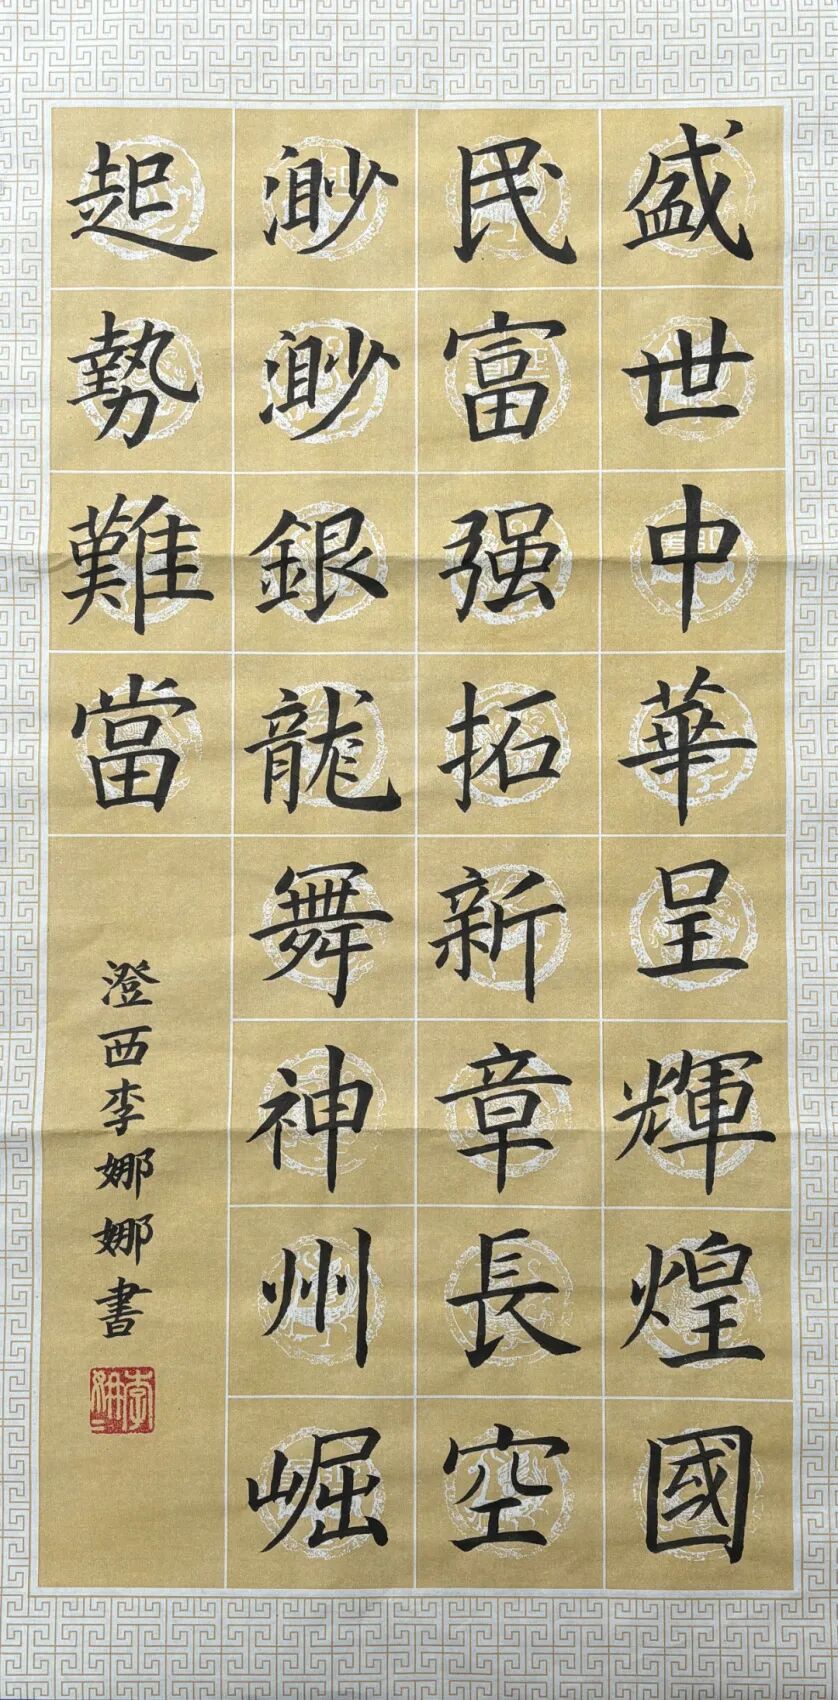 盛世中華呈輝煌國
民富强拓新章長空
渺渺銀龍舞神州崛
起勢難當
澄西李娜娜書